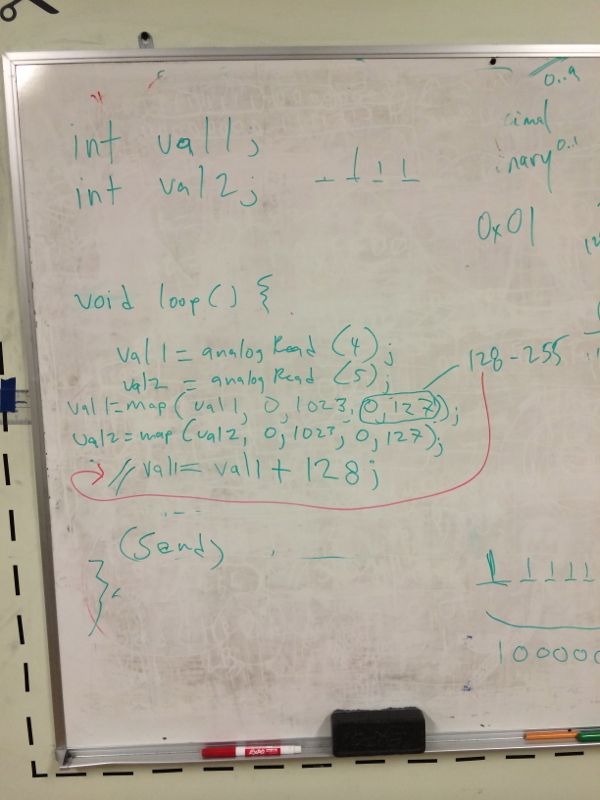 int val1;
int val2;
1 1 1
0..9
0..1
0x01
void loop() {
val1 = analogRead (4);
val2 = analogRead (5);
val1=map(val1, 0,1023, 0,127);
128-255
val2=map(val2, 0,1023, 0,127);
// val1= val1 + 128;
(Send)
}
1 1 1 1 1
100000
EXPO